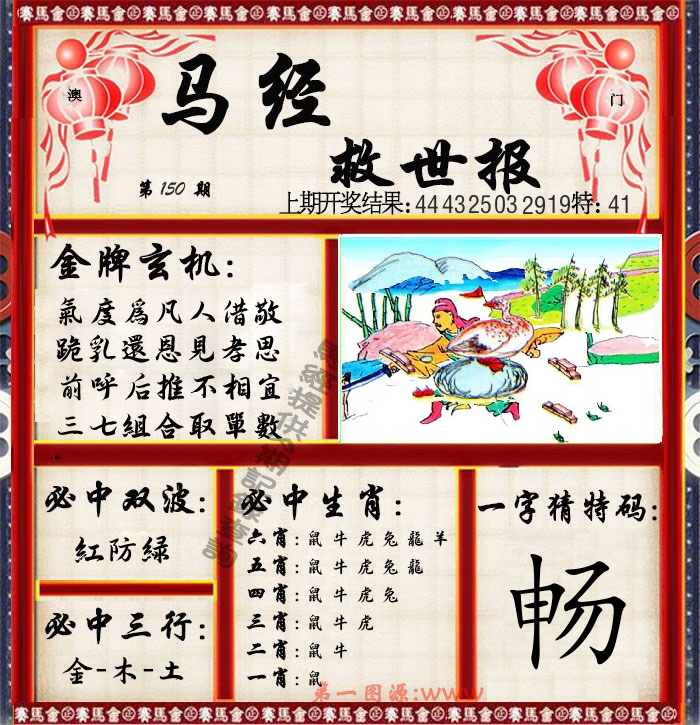 賽馬會㊣賽馬會㊣賽馬會㊣賽馬會㊣賽馬會㊣賽馬會㊣賽馬會
澳
门
马经
救世报
第150期
上期开奖结果:44 43 25 03 29 19特:41
金牌玄机:
氣度爲凡人借敬
跪乳還恩見孝思
前呼后推不相宜
三七組合取單數
必中双波:
紅防綠
必中三行:
金-木-土
必中生肖:
六肖:鼠牛虎兔龍羊
五肖:鼠牛虎兔龍
四肖:鼠牛虎兔
三肖:鼠牛虎
二肖:鼠牛
一肖:鼠
一字猜特码:
畅
第一图源:www